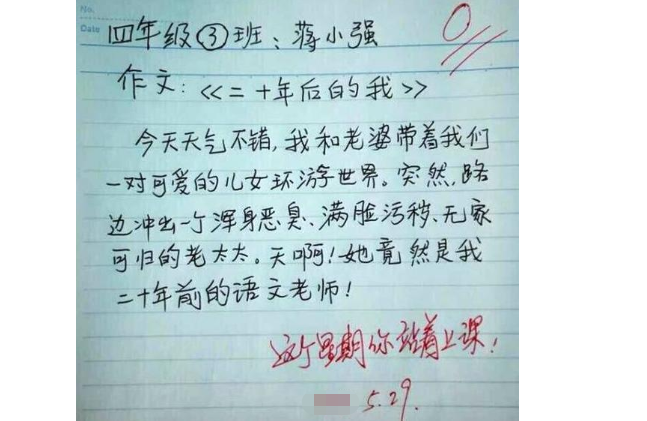 No.
Date
0
四年级③班:蒋小强
作文:《二十年后的我》
今天天气不错,我和老婆带着我们
一对可爱的儿女环游世界。突然,路
边冲出一个浑身恶臭、满脸污秽、无家
可归的老太太。天啊!她竟然是我
二十年前的语文老师!
这个星期你站着上课!
5.29.